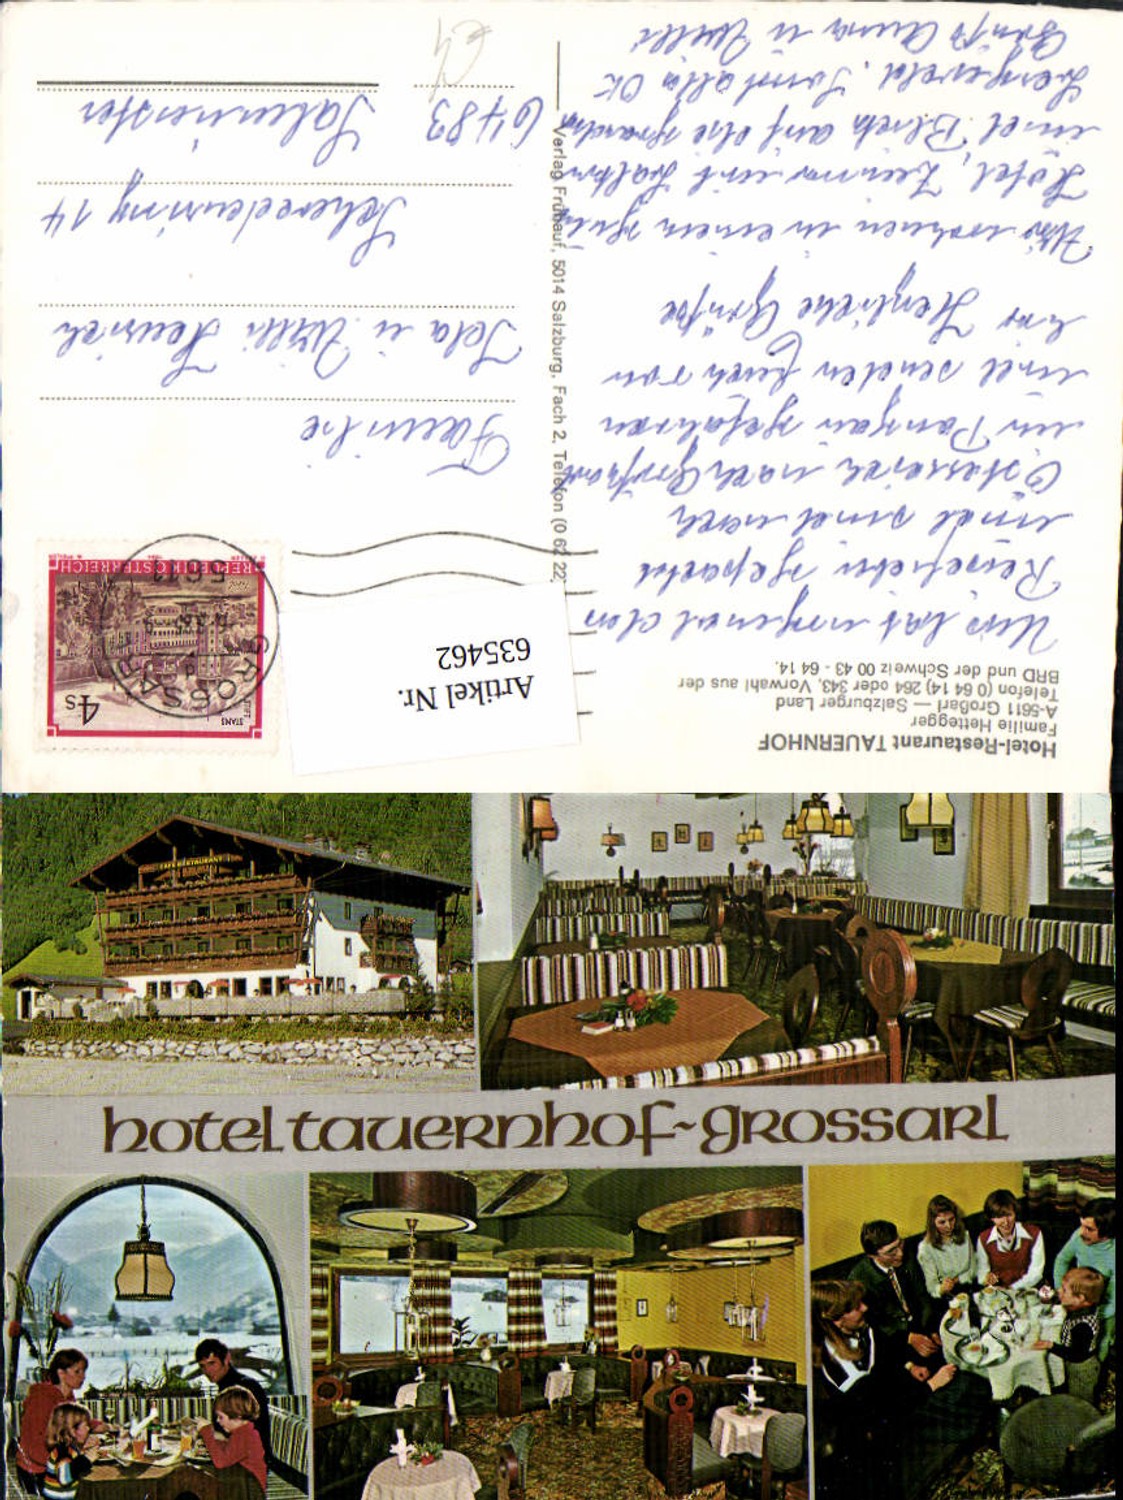 Hotel-Restaurant TAUERNHOF
Familie Hettegger
A-5611 Großarl — Salzburger Land
Telefon (0 64 14) 264 oder 343, Vorwahl aus der
BRD und der Schweiz 00 43 - 64 14.
Uns hat nochmal das
Reisefieber gepackt
und sind nach
Österreich nach Großarl
im Pongau gefahren
und senden Euch von
hier Herzliche Grüße
Wir wohnen in einem
Hotel, Zimmer mit Balkon
und Blick auf die
Sonst alles OK
Gruß Anna u Willi
Verlag Frühauf, 5014 Salzburg, Fach 2, Telefon (0 62 22)
Artikel Nr.
635462
REPUBLIK ÖSTERREICH
STIFT
STAMS
4 S
5611 GROSSARL
Familie
u. Willi
14
6483
Salmünster
€4
CAFE RESTAURANT
hotel tauernhof~grossarl